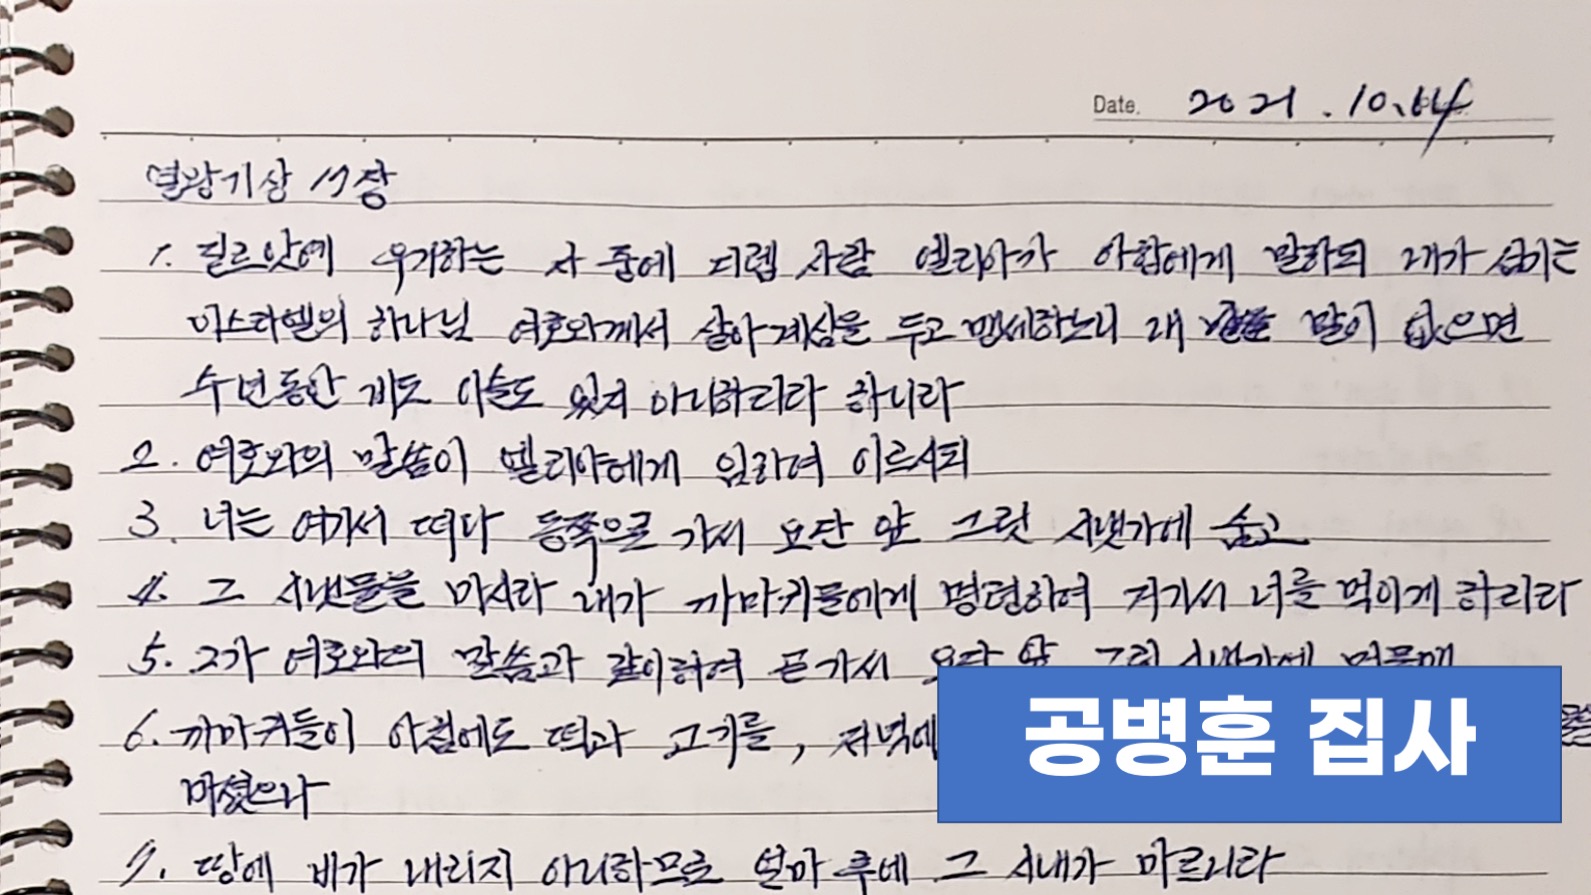 Date. 2021.10.14
열왕기상 17장
1. 길르앗에 우거하는 자 중에 디셉 사람 엘리야가 아합에게 말하되 내가 섬기는
이스라엘의 하나님 여호와께서 살아계심을 두고 맹세하노니 내 말이 없으면
수년동안 비도 이슬도 있지 아니하리라 하니라
2. 여호와의 말씀이 엘리야에게 임하여 이르시되
3. 너는 여기서 떠나 동쪽으로 가서 요단 앞 그릿 시냇가에 숨고
4. 그 시냇물을 마시라 내가 까마귀들에게 명령하여 거기서 너를 먹이게 하리라
5. 그가 여호와의 말씀과 같이하여 곧가서 요단 앞 그릿 시냇가에 머물매
6. 까마귀들이 아침에도 떡과 고기를, 저녁에
공병훈 집사
마셨으나
7. 땅에 비가 내리지 아니하므로 얼마 후에 그 시내가 마르니라